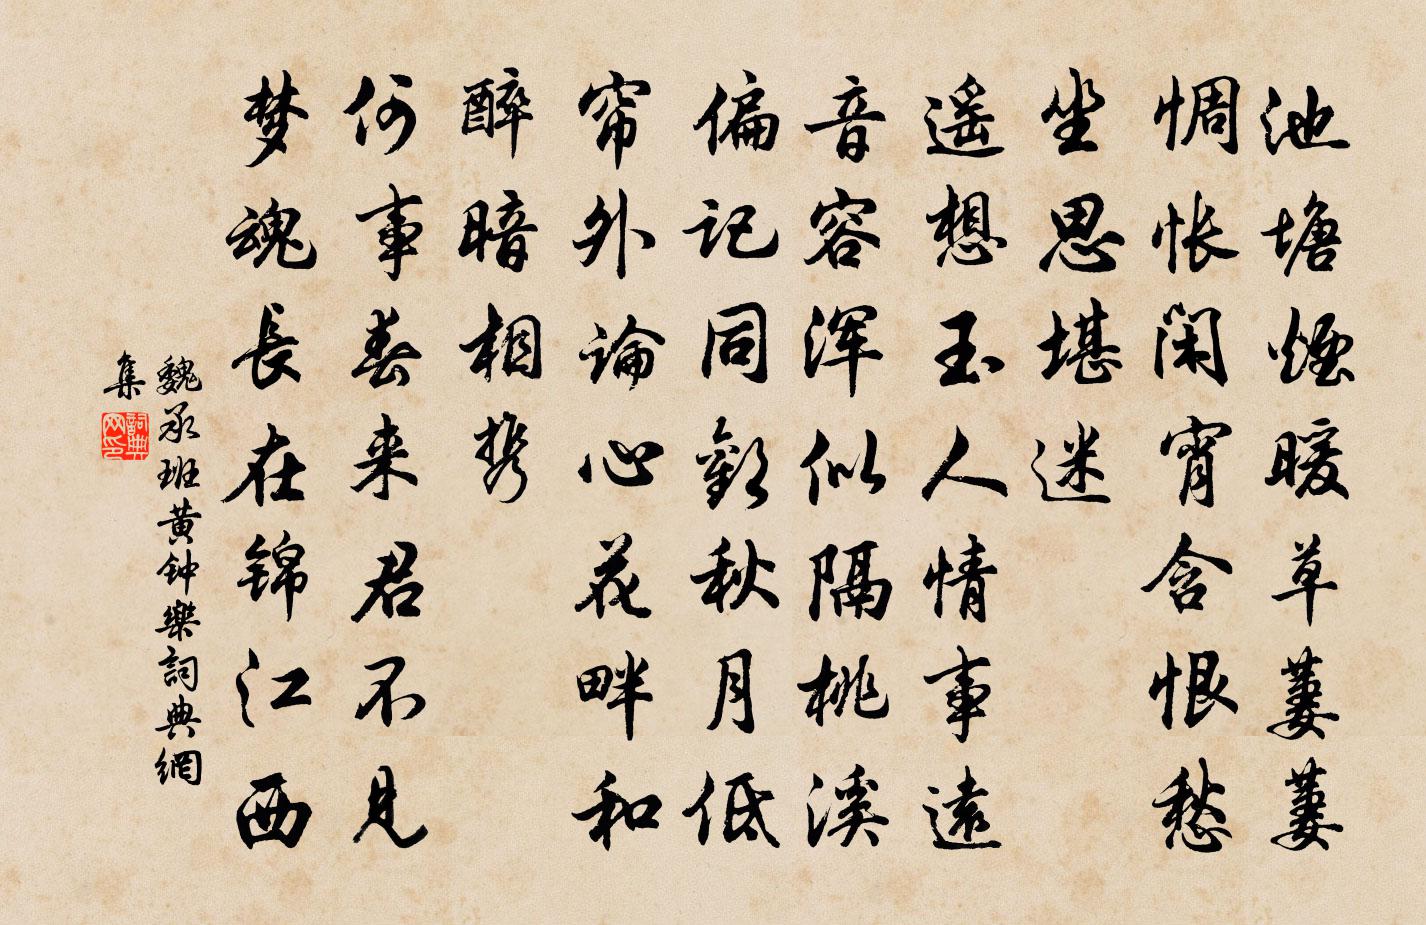 池塘煙暖草萋萋
惆怅闲宵含恨愁
坐思堪迷
遥想玉人情事遠
音容浑似隔桃溪
偏记同歡秋月低
帘外論心花畔和
醉暗相携
何事春来君不見
梦魂長在锦江西
魏承班黄钟樂詞典網
集
詞典網印